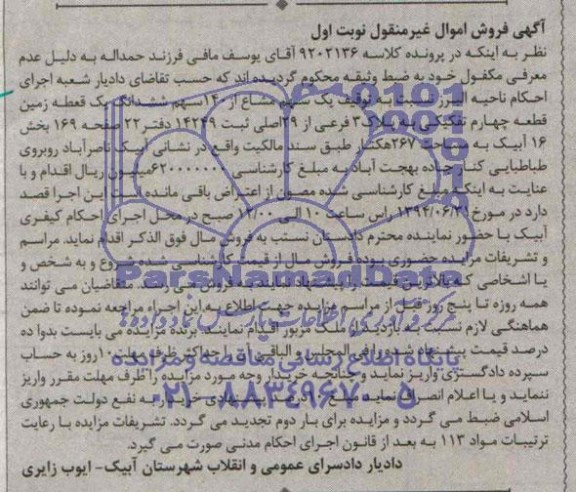 آگهی فروش اموال غیرمنقول نوبت اول
نظر به اینکه در پرونده کلاسه ۹۲۰۲۱۳۶ آقای یوسف مافی فرزند حمداله به دلیل عدم
معرفی مکفول خود به ضبط وثیقه محکوم گردیده اند که حسب تقاضای دادیار شعبه اجرای
احکام ناحیه البرز نسبت به توقیف یک سهم مشاع از ۱۴۰سهم ششدانگ یک قطعه زمین
قطعه چهارم تفکیکی به پلاک ۳ فرعی از ۲۹اصلی ثبت ۱۴۲۴۹ دفتر۲۲ صفحه ۱۶۹ بخش
۱۶ آبیک به مساحت ۲۶۷هکتار طبق سند مالکیت واقع در نشانی آبیک ناصرآباد روبروی
طباطبایی کنار جاده بهجت آباد به مبلغ کارشناسی ۶۲۰۰۰۰۰۰۰میلیون ریال اقدام و با
عنایت به اینکه مبلغ کارشناسی شده مصون از اعتراض باقی مانده است این اجرا قصد
دارد در مورخ ۱۳۹۴/۰۶/۲۹ راس ساعت ۱۰ الی ۱۲/۰۰ صبح در محل اجرای احکام کیفری
آبیک با حضور نماینده محترم دادستان نسبت به فروش مال فوق الذکر اقدام نماید. مراسم
و تشریفات مزایده حضوری بوده فروش مال از قیمت کارشناسی شده شروع و به شخص و
یا اشخاصی که بالاترین قیمت را پیشنهاد نمایند به فروش می رسد. متقاضیان می توانند
همه روزه تا پنج روز قبل از مراسم مزایده جهت اطلاع به این اجراء مراجعه نموده تا ضمن
هماهنگی لازم نسبت به بازدید از ملک مزبور اقدام نمایند. برنده مزایده می بایست بدوا ده
درصد قیمت پیشنهاد شده را فی المجلس و الباقی را حداکثر ظرف مهلت ۱۰روز به حساب
سپرده دادگستری واریز نماید و چنانچه خریدار وجه مورد مزایده را ظرف مهلت مقرر واریز
ننماید و یا اعلام انصراف نماید مبلغ ۱۰درصد به نفع دولت جمهوری
اسلامی ضبط می گردد و مزایده برای بار دوم تجدید می گردد. تشریفات مزایده با رعایت
ترتیبات مواد ۱۱۳ به بعد از قانون اجرای احکام مدنی صورت می گیرد.
دادیار دادسرای عمومی و انقلاب شهرستان آبیک- ایوب زایری
ParsNamadData
پایگاه اطلاع رسانی مناقصه و مزایده
۰۲۱-۸۸۳۴۹۶۷۰-۵